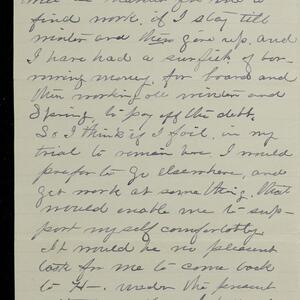 find work, if I stay till
winter and then give up, and
I have had a surfeit of bor-
rowing money, for board and
then working all winter and
Spring, to pay off the debt.
So I think if I fail, in my
trial to remain here, I would
prefer to go elsewhere, and
get work at some thing, that
would enable me to sup-
port myself comfortably.
It would be no pleasant
task for me to come back
to H-. under the present